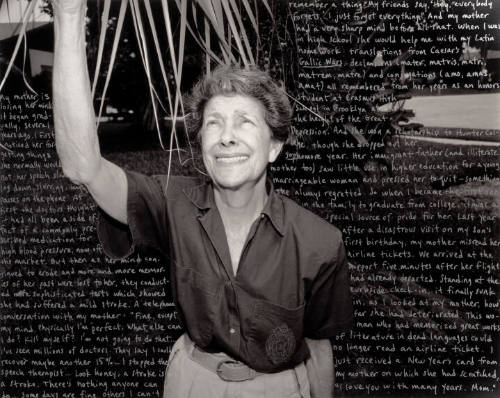 My mother is
losing her mind.
It began grad-
ually, several
years ago. First
I noticed her for-
getting things
she normally would-
n't, her speech slow-
ing down, slurring, long
pauses on the phone. At
first the doctors thought
it had all been a side ef-
fect of a commonly pre-
scribed medication for
high blood pressure, now off
the market. But then as her mind con-
tinued to erode and more and more memor-
ies of her past were lost to her, they conduct-
ed more sophisticated tests which showed
she had suffered a mild stroke. A telephone
conversation with my mother: "Fine, except
my mind. Physically I'm perfect. What else can
I do? Kill myself? I'm not going to do that...
I've seen millions of doctors. They say I could
recover maybe another 15%... I stopped the
speech therapist... Look honey, a stroke is
a stroke. There's nothing anyone can
do... some days are fine others I can't
remember a thing! My friends say, 'Holy, everybody
forgets.' I just forget everything!" And my mother
had a very sharp mind before all that. When I was
in high school she would help me with my Latin
homework: translations from Caesar's
Gallic Wars, declensions (mater, matris, matri,
matrem, matre) and conjugations (amo, amas,
amat) all remembered from her years as an honors
student at Erasmus High
School in Brooklyn at
the height of the Great
Depression. And she won a scholarship to Hunter Col-
lege, though she dropped out her
sophomore year. Her immigrant father (and illiterate
mother too) saw little use in higher education for a young
marriageable woman and pressed her to quit—something
she always regretted. So when I became the first
in the family to graduate from college it was a
special source of pride for her. Last year
after a disastrous visit on my son's
first birthday, my mother misread her
airline tickets. We arrived at the
airport five minutes after her flight
had already departed. Standing at the
curbside check-in, it finally sunk
in, as I looked at my mother, how
far she had deteriorated. This wo-
man who had memorised great works
of literature in dead languages could
no longer read an airline ticket. I
just received a New Years card from
my mother on which she had scratched,
"I love you with many years. Mom."